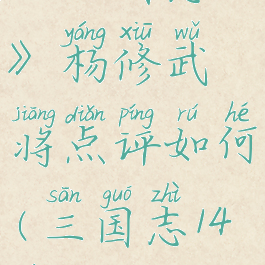 yáng xiū wǔ
》 杨修武
jiāng diǎn píng rú hé
将点评如何
sān guó zhì
(三国志14